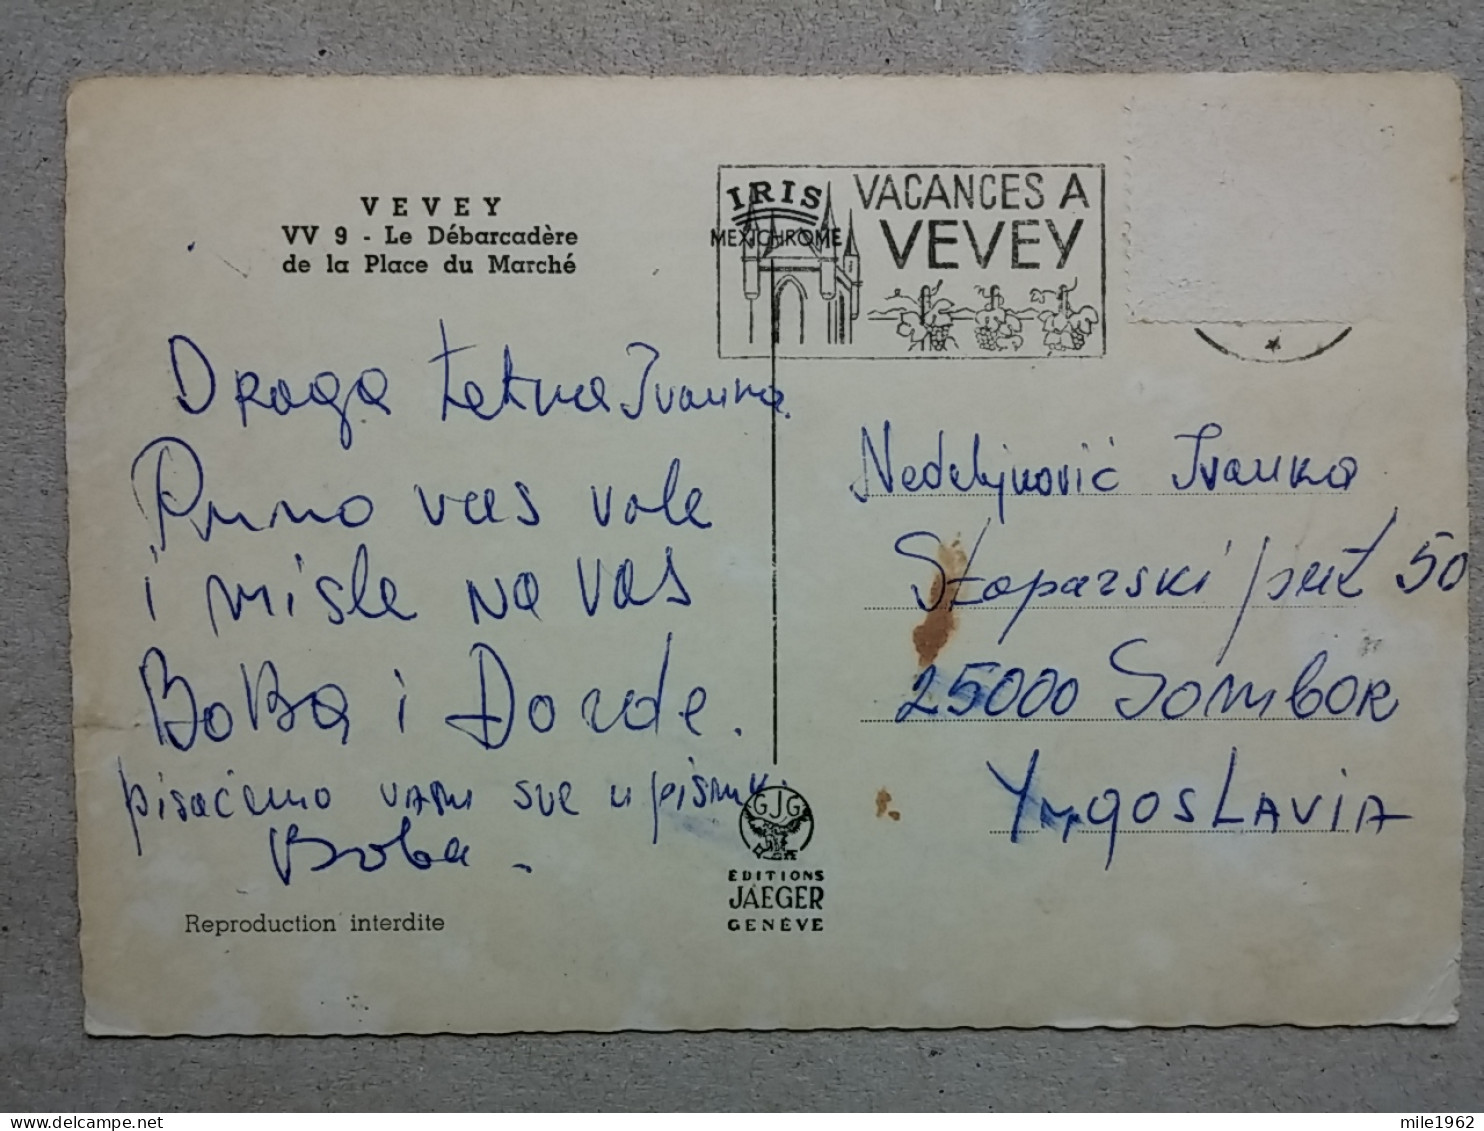 VEVEY
VV 9 - Le Débarcadère
de la Place du Marché
IRIS
MEXICHROME
VACANCES A
VEVEY
Draga tetka Ivanka.
Puno vas vole
i misle na vas
Boba i Đorđe.
pisaćemo vam sve u pismu
Boba.
Nedeljković Ivanka
Staparski put 50
25000 Sombor
Yugoslavia
GJG
ÉDITIONS
JAEGER
GENÈVE
Reproduction interdite
mile1962